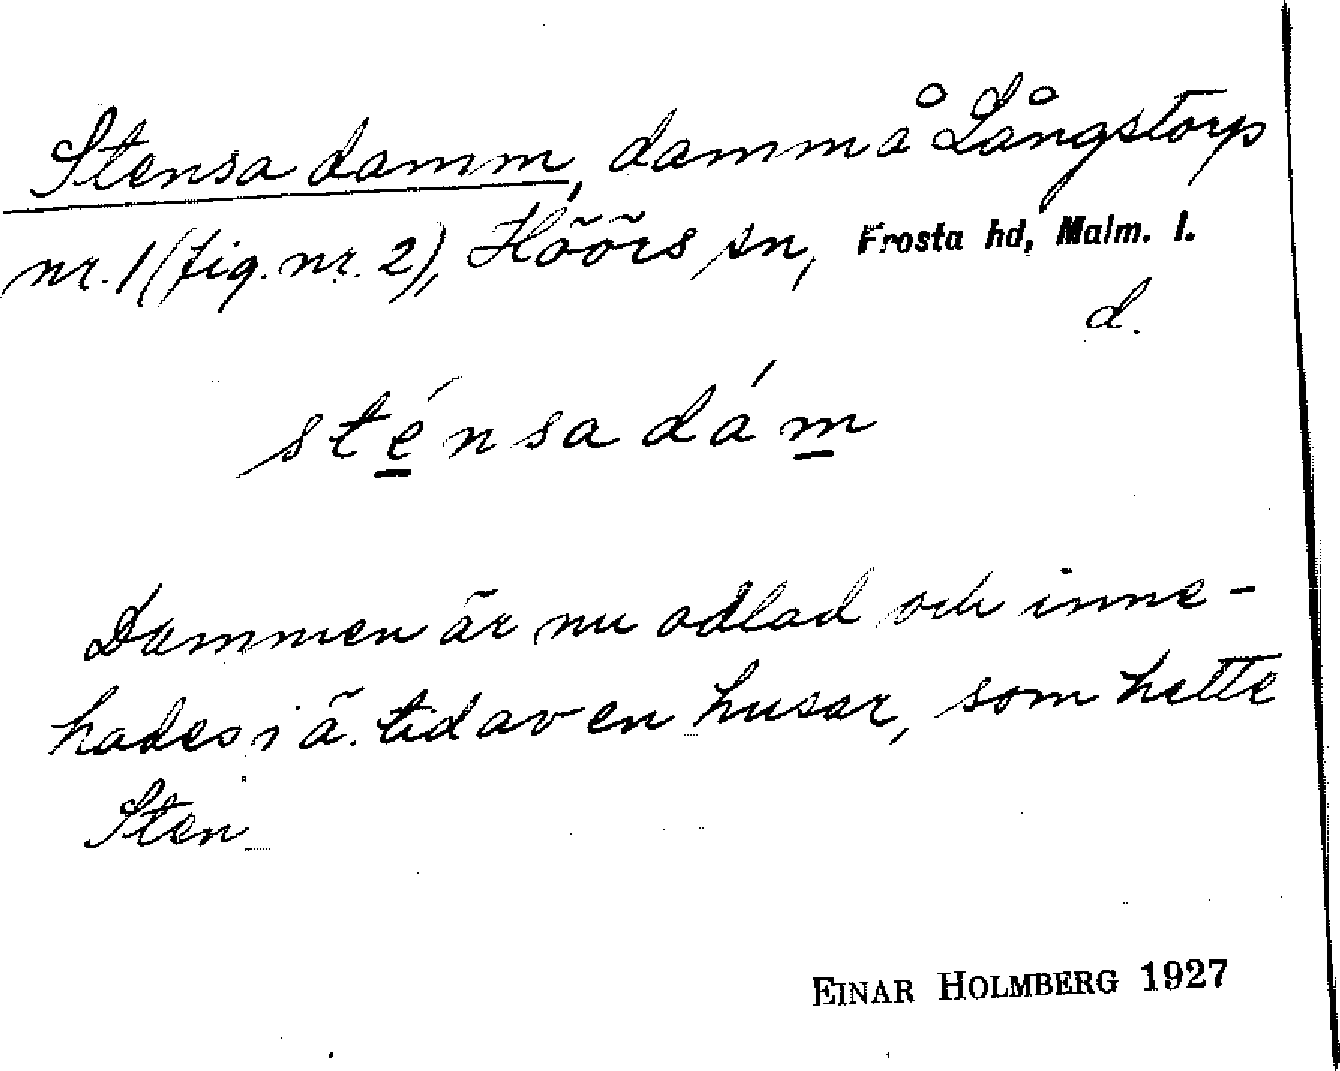 Stensa damm, damm å Långstorp
nr. 1 (fig. nr. 2), Höörs sn, Frosta hd, Malm. l.
d.
sténsa dám
Dammen är nu odlad och inne-
hades i ä. tid av en husar, som hette
Sten
EINAR HOLMBERG 1927